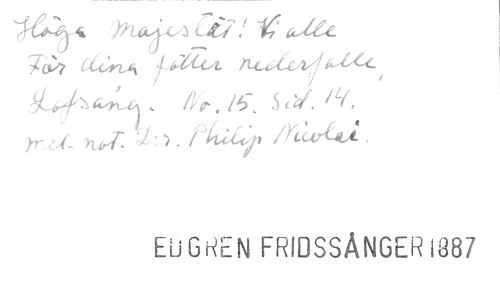 Höga Majestät! Vi alle
För dina fötter nederfalle,
Lofsång. No. 15. Sid. 14.
mel. not. D:r. Philip Nicolai.
EDGREN FRIDSSÅNGER 1887